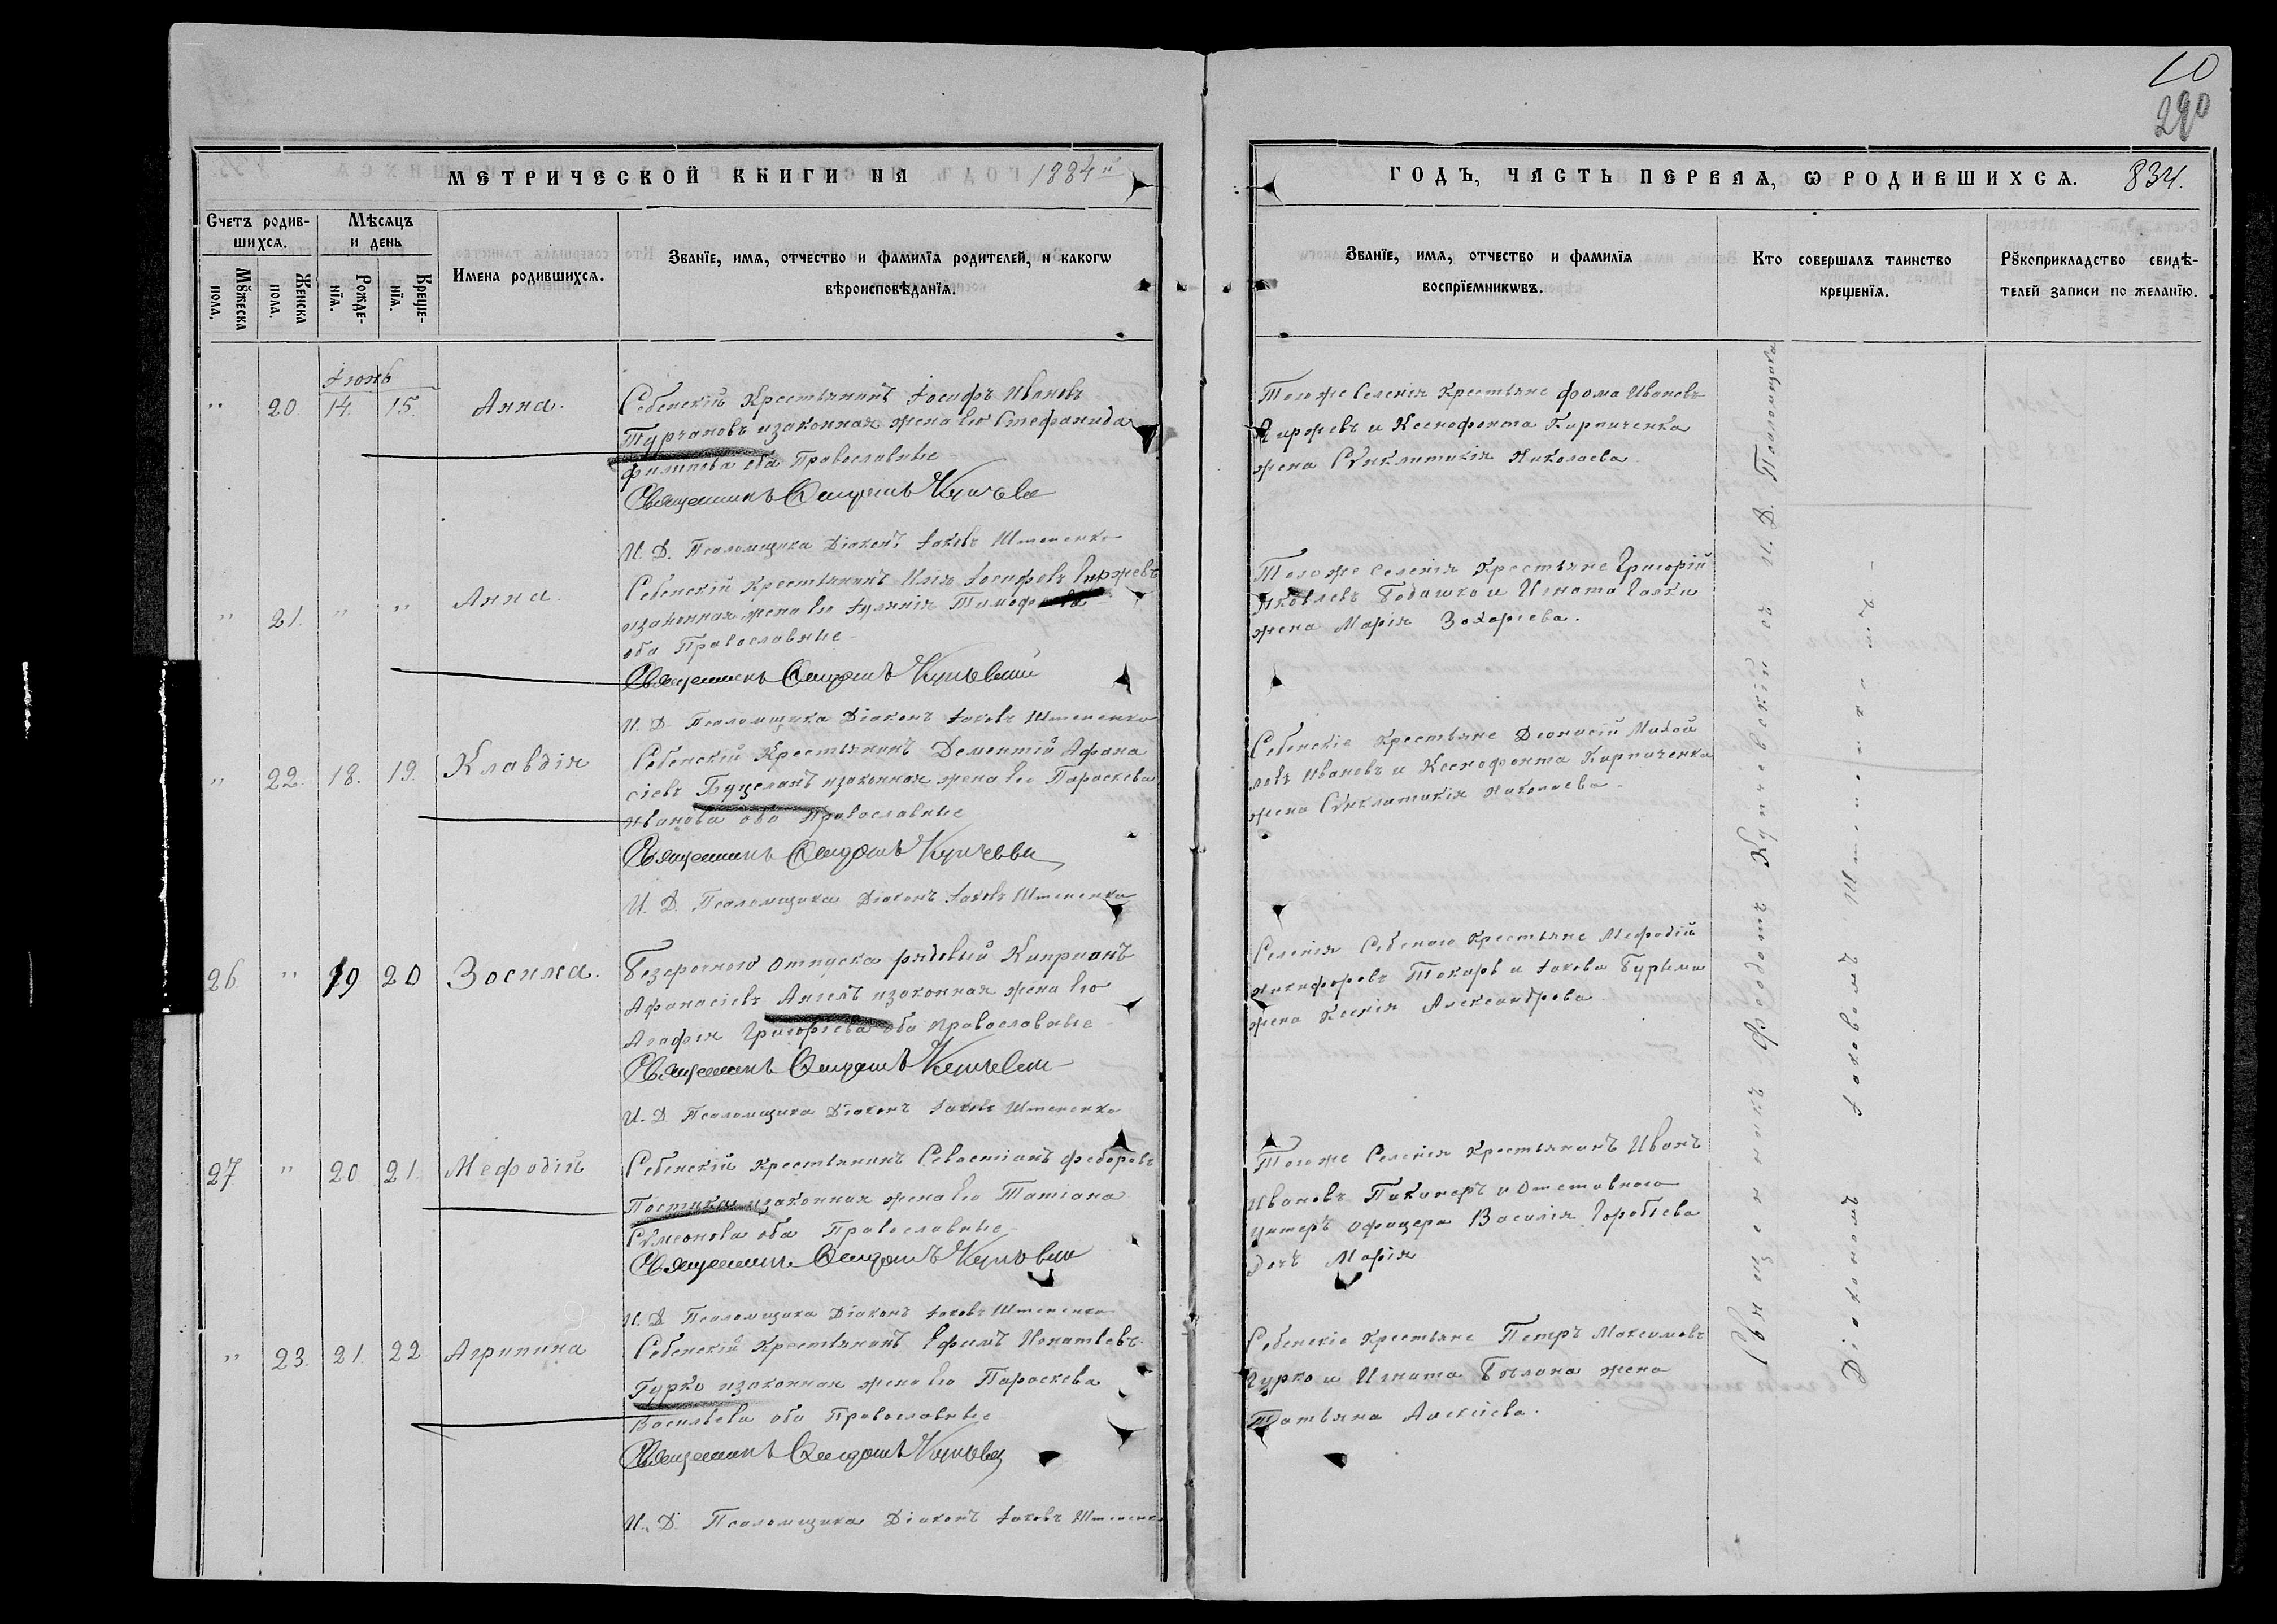 10
290
МЕТРИЧЕСКОЙ КНИГИ НА 1884й
ГОДЪ, ЧАСТЬ ПЕРВАЯ, Ѡ РОДИВШИХСЯ. 834.
Счетъ родив-
шихсѧ.
Мѣсѧцъ
и день
Мꙋжеска
пола.
Женска
пола.
Рожде-
нїѧ.
Креще-
нїѧ.
Имена родившихсѧ.
Званїе, имѧ, отчество и фамилїѧ родителей, и какогѡ
вѣроисповѣданїѧ.
Званїе, имѧ, отчество и фамилїѧ
воспрїемникѡвъ.
Кто совершалъ таинство
крещенїѧ.
Рꙋкоприкладство свидѣ-
телей записи по желанїю.
Іюнь
" 20. 14. 15. Анна.
Себенскій Крестьянинъ Іосифъ Ивановъ
Турчановъ изаконная жена его Стефанида
Филипова оба Православные
Священникъ Ѳеодотъ Купчевск
И. Д. Псаломщика Діаконъ Іаковъ Штепенко
Тогоже Селенія Крестьяне Фома Ивановъ
Гиржевъ и Ксенофонта Кирпиченка
жена Сѵнклитикія Николаева.
" 21. " " Анна.
Себенскій Крестьянинъ Илія Іосифовъ Гиржевъ
изаконная жена его Іулянія Тимофеева
оба Православные
Священникъ Ѳеодотъ Купчевскій
И. Д. Псаломщика Діаконъ Іаковъ Штепенко
Тогоже селенія Крестьяне Григорій
Яковлевъ Бодашко и Игната Галки
жена Марія Захаріева.
" 22. 18. 19. Клавдія
Себенскій Крестьянинъ Дементій Афана
сіевъ Буцеланъ изаконная жена его Параскева
Иванова оба Православные
Священникъ Ѳеодотъ Купчевск
И. Д. Псаломщика Діаконъ Іаковъ Штепенко
Себенскіе Крестьяне Деонисій Михай
ловъ Ивановъ и Ксенофонта Кирпиченка
жена Сѵнклитикія Николаева.
26. " 19 20 Зосима.
Безсрочного отпуска рядовый Кипріанъ
Афанасіевъ Ангелъ изаконная жена его
Агафія Григоріева оба Православные
Священникъ Ѳеодотъ Купчевск
И. Д. Псаломщика Діаконъ Іаковъ Штепенко
Селенія Себеного Крестьяне Мефодій
Никифоровъ Токарь и Іакова Бурьма
жена Ксенія Александрова
27 " 20 21. Мефодій
Себенскій Крестьянинъ Севастіанъ Федоровъ
Постика изаконная жена его Татіана
Сѵмеонова оба Православные
Священникъ Ѳеодотъ Купчевск
И. Д. Псаломщика Діаконъ Іаковъ Штепенко
Тогоже Селенія Крестьянинъ Иванъ
Ивановъ Пикинеръ и Отставного
унтеръ офицера Василія Горобіева
дочь Марія
" 23. 21. 22 Агрипина
Себенскій Крестьянинъ Ефимъ Игнатьевъ
Гурко изаконная жена его Параскева
Васильева оба Православные
Священникъ Ѳеодотъ Купчевск
И. Д. Псаломщика Діаконъ Іаковъ Штепенк
Себенскіе Крестьяне Петръ Максимовъ
Гурко и Игната Боглана жена
Татьяна Алексіева.
Священникъ Ѳеодотъ Купчевскій съ И. Д. Псаломщика
Діакономъ Іаковомъ Штепенко